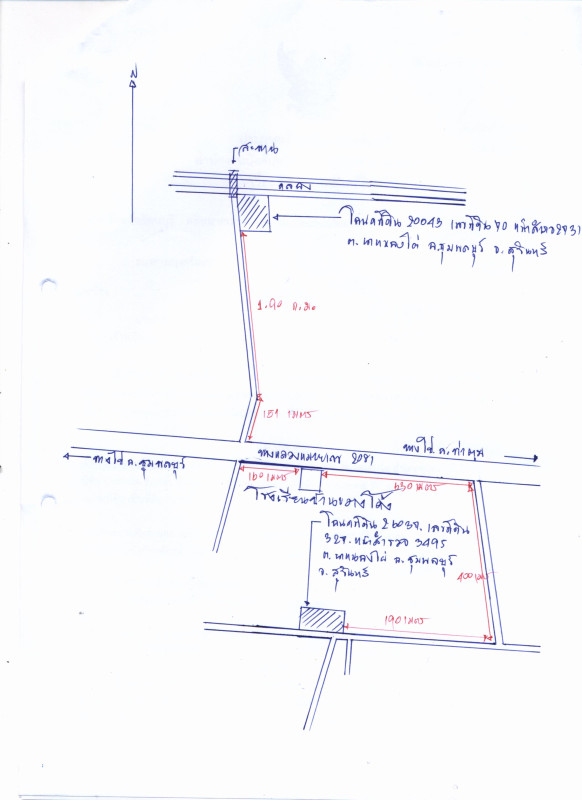 N
สะพาน
คลอง
โฉนดที่ดิน 20043 เลขที่ดิน 70 หน้าสำรวจ 2931
ต.นาหนองไผ่ อ.ชุมพลบุรี จ.สุรินทร์
151 เมตร
ทางไป อ.ท่าตูม
ทางหลวงหมายเลข 2081
ทางไป อ.ชุมพลบุรี
160 เมตร
630 เมตร
โรงเรียนบ้าน
โฉนดที่ดิน เลขที่ดิน
หน้าสำรวจ 3495
ต.นาหนองไผ่ อ.ชุมพลบุรี
จ.สุรินทร์
400 เมตร
190 เมตร